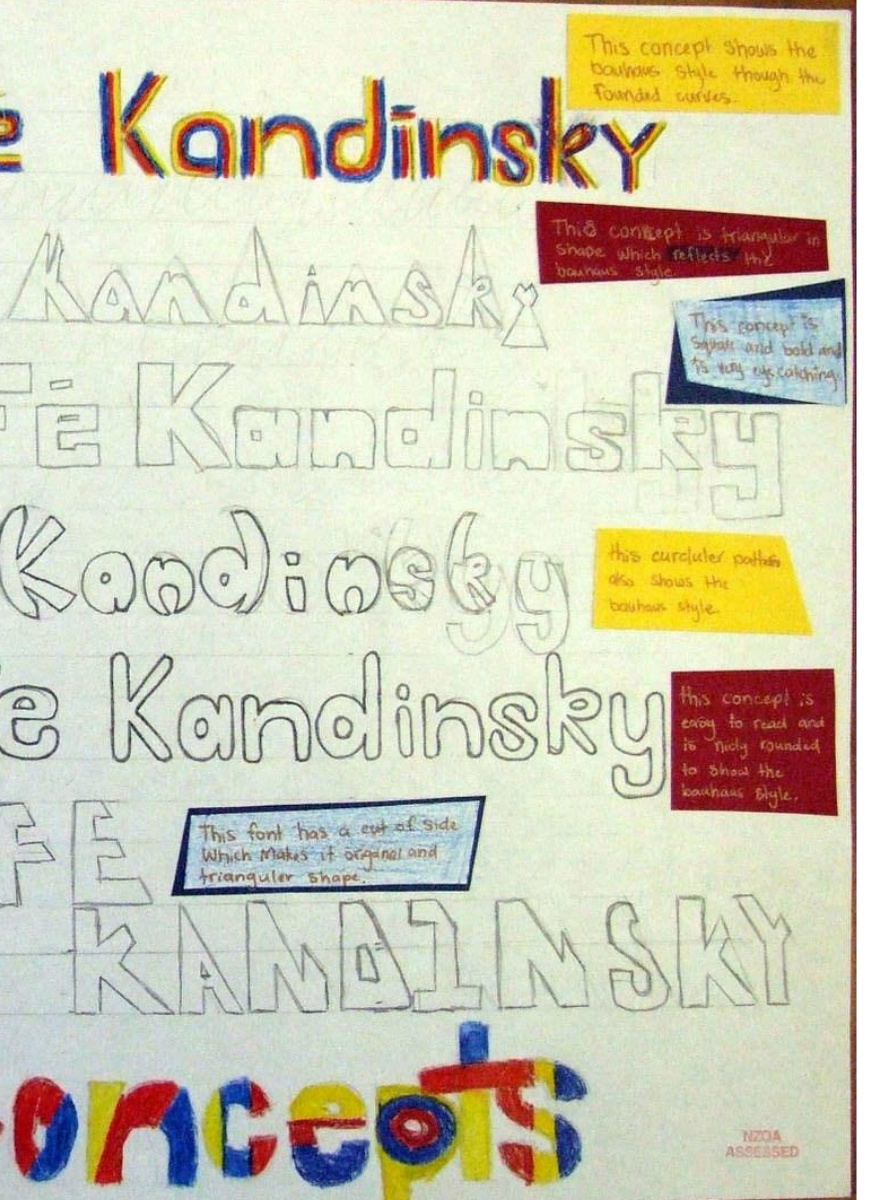 This concept shows the
bauhaus style though the
rounded curves.
e Kandinsky
This concept is triangular in
shape which reflects the
bauhaus style.
Kandinsky
This concept is
square and bold and
is very eyecatching.
Fé Kandinsky
this curculer pattern
also shows the
bauhaus style.
Kandinsky
e Kandinsky
this concept is
easy to read and
is nicly rounded
to show the
bauhaus style.
FE
This font has a cut of side
Which Makes it organal and
trianguler shape.
KANDINSKY
oncepts
NZQA
ASSESSED